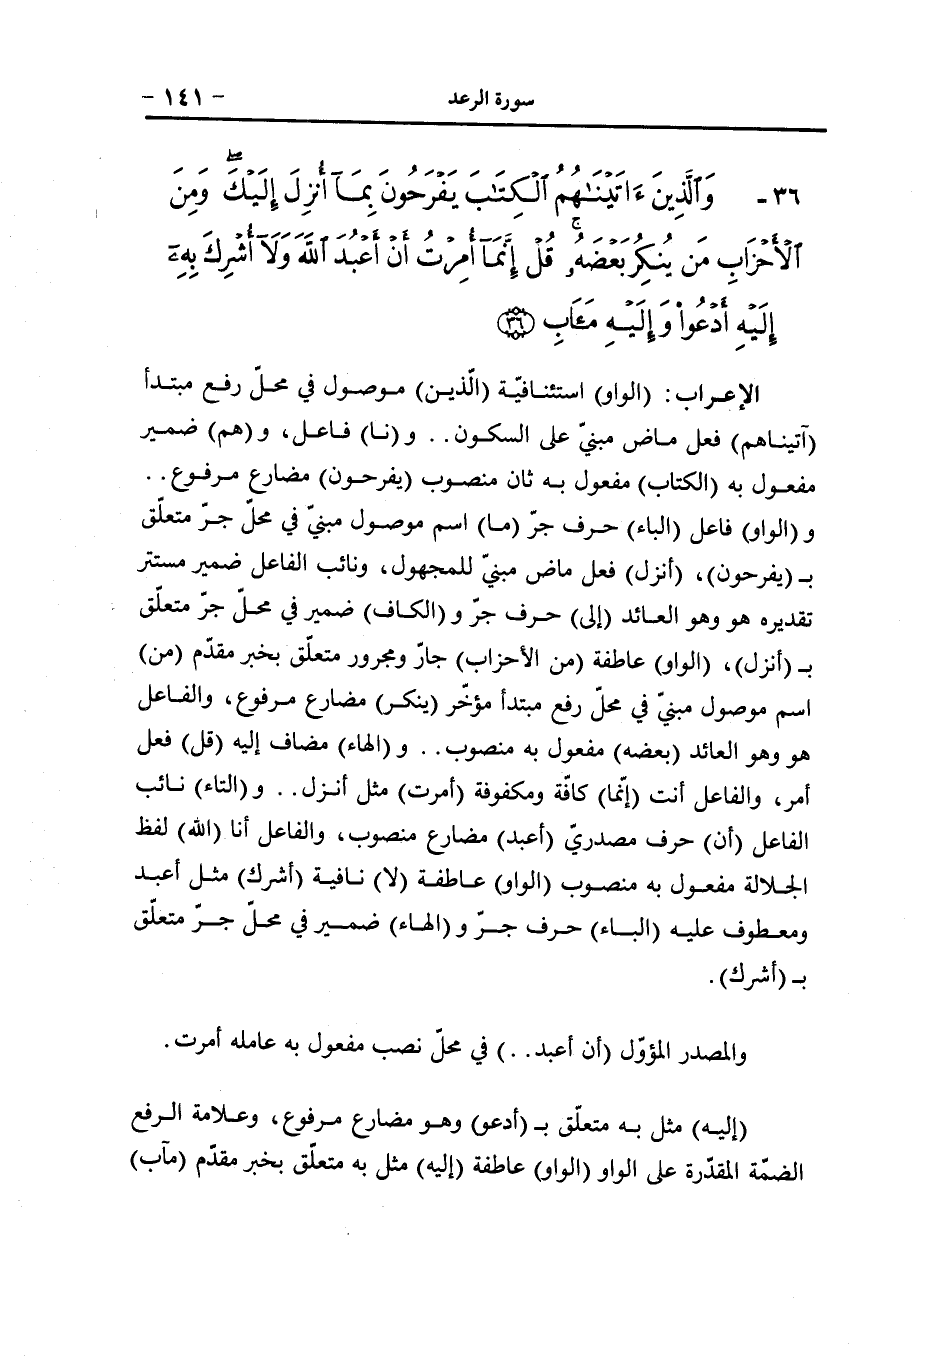 سورة الرعد - ١٤١ -
٣٦ - وَٱلَّذِينَ ءَاتَيْنَـٰهُمُ ٱلْكِتَـٰبَ يَفْرَحُونَ بِمَآ أُنزِلَ إِلَيْكَ ۖ وَمِنَ
ٱلْأَحْزَابِ مَن يُنكِرُ بَعْضَهُۥ ۚ قُلْ إِنَّمَآ أُمِرْتُ أَنْ أَعْبُدَ ٱللَّهَ وَلَآ أُشْرِكَ بِهِۦٓ ۚ
إِلَيْهِ أَدْعُوا۟ وَإِلَيْهِ مَـَٔابِ ﴿٣٦﴾
الإعراب: (الواو) استئنافيّة (الّذين) موصول في محلّ رفع مبتدأ
(آتيناهم) فعل ماض مبنيّ على السكون.. و(نا) فاعل، و(هم) ضمير
مفعول به (الكتاب) مفعول به ثان منصوب (يفرحون) مضارع مرفوع..
و(الواو) فاعل (الباء) حرف جرّ (ما) اسم موصول مبنيّ في محلّ جرّ متعلّق
بـ (يفرحون)، (أنزل) فعل ماض مبنيّ للمجهول، ونائب الفاعل ضمير مستتر
تقديره هو وهو العائد (إلى) حرف جرّ و(الكاف) ضمير في محلّ جرّ متعلّق
بـ (أنزل)، (الواو) عاطفة (من الأحزاب) جارّ ومجرور متعلّق بخبر مقدّم (من)
اسم موصول مبنيّ في محلّ رفع مبتدأ مؤخّر (ينكر) مضارع مرفوع، والفاعل
هو وهو العائد (بعضه) مفعول به منصوب.. و(الهاء) مضاف إليه (قل) فعل
أمر، والفاعل أنت (إنّما) كافّة ومكفوفة (أمرت) مثل أنزل.. و(التاء) نائب
الفاعل (أن) حرف مصدريّ (أعبد) مضارع منصوب، والفاعل أنا (الله) لفظ
الجلالة مفعول به منصوب (الواو) عاطفة (لا) نافية (أشرك) مثل أعبد
ومعطوف عليه (الباء) حرف جرّ و(الهاء) ضمير في محلّ جرّ متعلّق
بـ (أشرك).
والمصدر المؤوّل (أن أعبد..) في محلّ نصب مفعول به عامله أمرت.
(إليه) مثل به متعلّق بـ (أدعو) وهو مضارع مرفوع، وعلامة الرفع
الضمّة المقدّرة على الواو (الواو) عاطفة (إليه) مثل به متعلّق بخبر مقدّم (مآب)